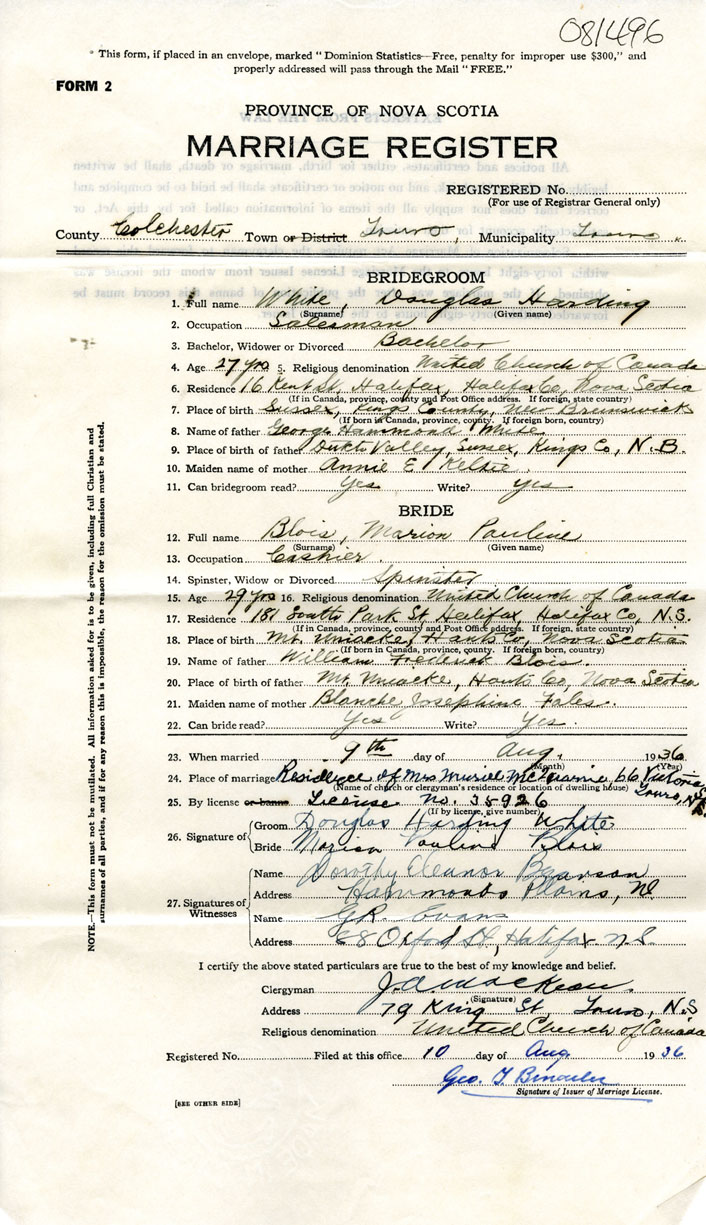 081496
* This form, if placed in an envelope, marked "Dominion Statistics—Free, penalty for improper use $300," and
properly addressed will pass through the Mail "FREE."
FORM 2
PROVINCE OF NOVA SCOTIA
MARRIAGE REGISTER
REGISTERED No.
(For use of Registrar General only)
County Colchester Town or District Truro, Municipality Truro
BRIDEGROOM
1. Full name White, Douglas Harding
(Surname) (Given name)
2. Occupation Salesman
3. Bachelor, Widower or Divorced Bachelor
4. Age 27 yrs 5. Religious denomination United Church of Canada
6. Residence 16 Kent St, Halifax, Halifax Co, Nova Scotia
(If in Canada, province, county and Post Office address. If foreign, state country)
7. Place of birth Sussex, Kings County, New Brunswick
(If born in Canada, province, county. If foreign born, country)
8. Name of father George Hammond White
9. Place of birth of father Valley, Sussex, Kings Co, N.B.
10. Maiden name of mother Annie E
11. Can bridegroom read? Yes Write? yes
BRIDE
12. Full name Blois, Marion Pauline
(Surname) (Given name)
13. Occupation Cashier
14. Spinster, Widow or Divorced Spinster
15. Age 29 yrs 16. Religious denomination United Church of Canada
17. Residence 181 South Park St, Halifax, Halifax Co, N.S.
(If in Canada, province, county and Post Office address. If foreign, state country)
18. Place of birth Mt. Uniacke, Hants Co, Nova Scotia
(If born in Canada, province, county. If foreign born, country)
19. Name of father William Frederick Blois
20. Place of birth of father Mt. Uniacke, Hants Co, Nova Scotia
21. Maiden name of mother Blanche Josephine Fales
22. Can bride read? Yes Write? Yes.
23. When married 9th day of Aug. 1936
(Month) (Year)
24. Place of marriage Residence of Mrs 66 Victoria
(Name of church or clergyman's residence or location of dwelling house) Truro, N.S.
25. By license or banns License no. 38926
(If by license, give number)
26. Signature of Groom Douglas Harding White
Bride Marion Pauline Blois
27. Signatures of Witnesses Name Dorothy Eleanor
Address Hammonds Plains, NS
Name G.R. Evans
Address 68 Oxford St, Halifax N.S.
I certify the above stated particulars are true to the best of my knowledge and belief.
Clergyman
(Signature)
Address 79 King St Truro, N.S
Religious denomination United Church of Canada
Registered No. Filed at this office 10 day of Aug 1936
Geo. T.
Signature of Issuer of Marriage License.
[SEE OTHER SIDE]
NOTE.—This form must not be mutilated. All information asked for is to be given, including full Christian and
surnames of all parties, and if for any reason this is impossible, the reason for the omission must be stated.